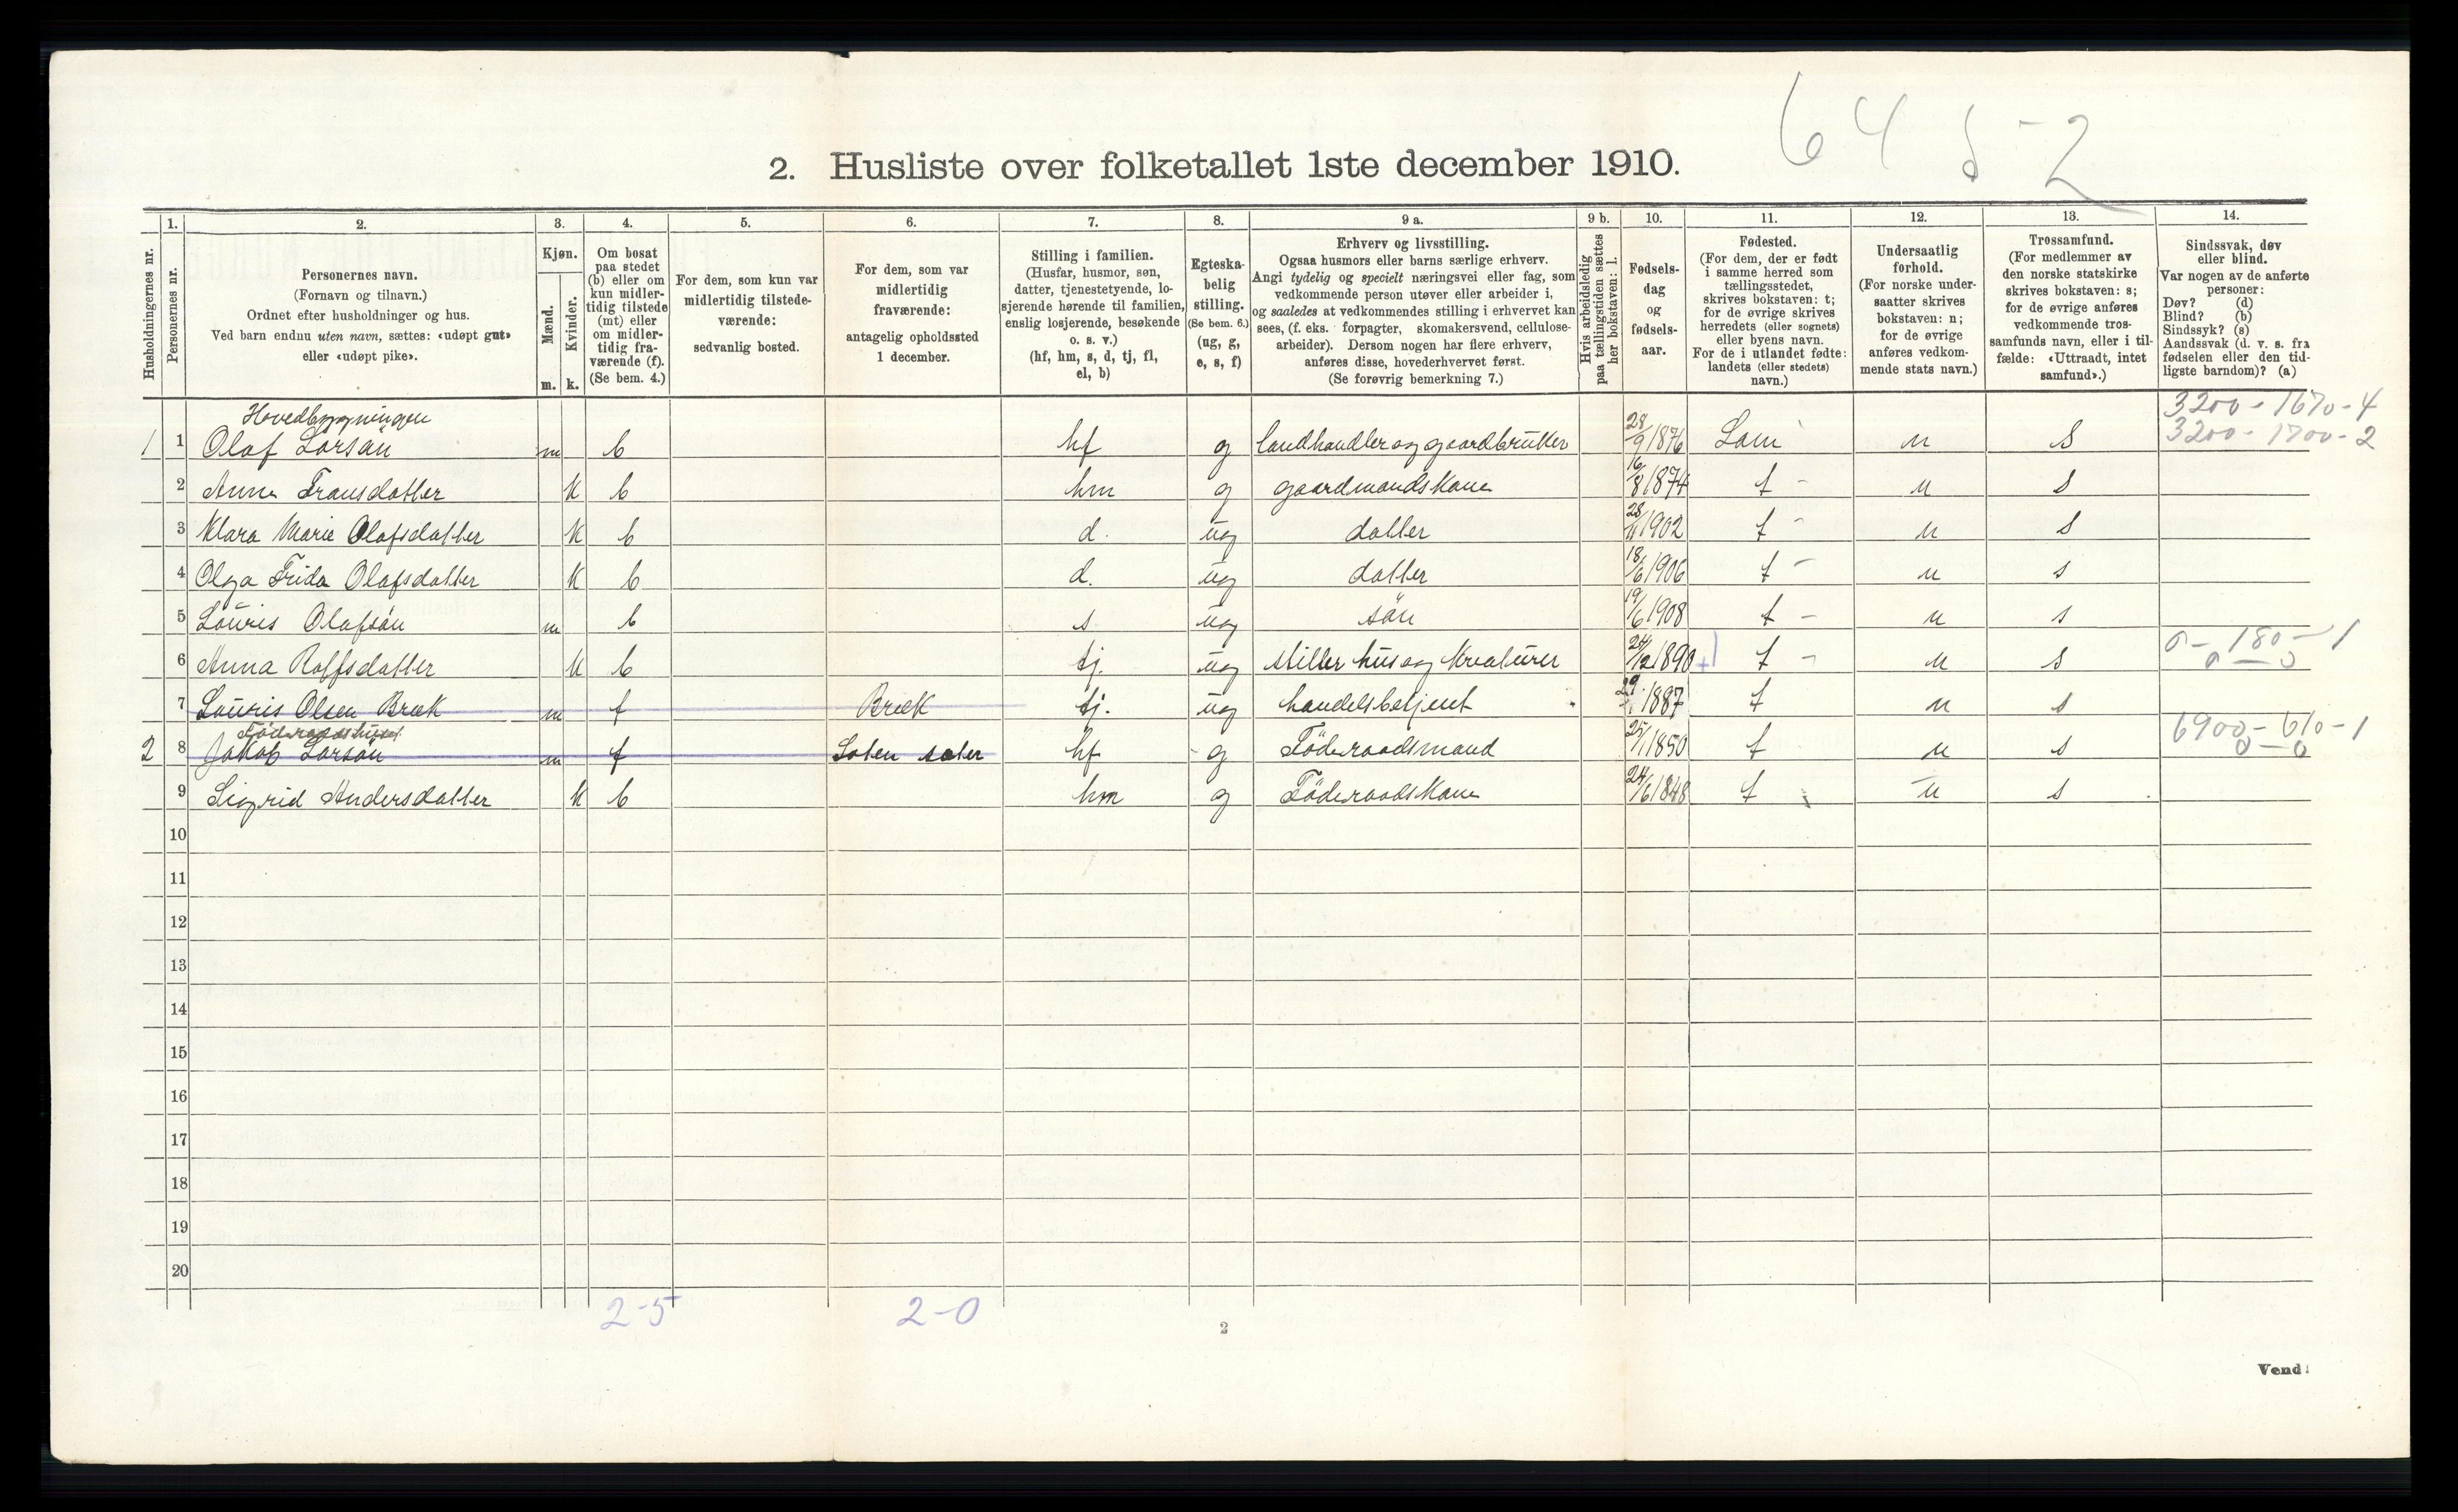 64 5-2
2. Husliste over folketallet 1ste december 1910.
Husholdningernes nr.
1.
Personernes nr.
2.
Personernes navn.
(Fornavn og tilnavn.)
Ordnet efter husholdninger og hus.
Ved barn endnu uten navn, sættes: «udøpt gut»
eller «udøpt pike».
3.
Kjøn.
Mænd.
Kvinder.
m. k.
4.
Om bosat
paa stedet
(b) eller om
kun midler-
tidig tilstede
(mt) eller
om midler-
tidig fra-
værende (f).
(Se bem. 4.)
5.
For dem, som kun var
midlertidig tilstede-
værende:
sedvanlig bosted.
6.
For dem, som var
midlertidig
fraværende:
antagelig opholdssted
1 december.
7.
Stilling i familien.
(Husfar, husmor, søn,
datter, tjenestetyende, lo-
sjerende hørende til familien,
enslig losjerende, besøkende
o. s. v.)
(hf, hm, s, d, tj, fl,
el, b)
8.
Egteska-
belig
stilling.
(Se bem. 6.)
(ug, g,
e, s, f)
9 a.
Erhverv og livsstilling.
Ogsaa husmors eller barns særlige erhverv.
Angi tydelig og specielt næringsvei eller fag, som
vedkommende person utøver eller arbeider i,
og saaledes at vedkommendes stilling i erhvervet kan
sees, (f. eks. forpagter, skomakersvend, cellulose-
arbeider). Dersom nogen har flere erhverv,
anføres disse, hovederhvervet først.
(Se forøvrig bemerkning 7.)
9 b.
Hvis arbeidsledig
paa tællingstiden sættes
her bokstaven: l.
10.
Fødsels-
dag
og
fødsels-
aar.
11.
Fødested.
(For dem, der er født
i samme herred som
tællingsstedet,
skrives bokstaven: t;
for de øvrige skrives
herredets (eller sognets)
eller byens navn.
For de i utlandet fødte:
landets (eller stedets)
navn.)
12.
Undersaatlig
forhold.
(For norske under-
saatter skrives
bokstaven: n;
for de øvrige
anføres vedkom-
mende stats navn.)
13.
Trossamfund.
(For medlemmer av
den norske statskirke
skrives bokstaven: s;
for de øvrige anføres
vedkommende tros-
samfunds navn, eller i til-
fælde: «Uttraadt, intet
samfund».)
14.
Sindssvak, døv
eller blind.
Var nogen av de anførte
personer:
Døv? (d)
Blind? (b)
Sindssyk? (s)
Aandssvak (d. v. s. fra
fødselen eller den tid-
ligste barndom)? (a)
Hovedbygningen 3200-1670-4
1 1 Olaf Larsön m b hf g landhandler og gaardbruker 28/9 1876 Lom n S 3200-1700-2
2 Anna Fransdatter k b hm g gaardmandskone 16/8 1874 t - n S
3 Klara Marie Olafsdatter k b d. ug datter 28/11 1902 t - n S
4 Olga Frida Olafsdatter k b d. ug datter 18/6 1906 t - n s
5 Lauris Olafsön m b s ug sön 19/6 1908 t - n s
6 Anna Rolfsdatter k b tj. ug steller hus og kreaturer 24/12 1890 t - n s 0-180-1
0-0
7 Lauris Olsen Bræk m f Bræk tj. ug handelsbetjent 1887 t n s
Föderaadshus 6900-610-1
2 8 Jakob Larsön m f Soten sæter hf g Föderaadsmand 25/1 1850 t n s 0-0
9 Sigrid Andersdatter k b hm g Föderaadskone 24/6 1848 t n s
10
11
12
13
14
15
16
17
18
19
20
2-5 2-0
2
Vend!